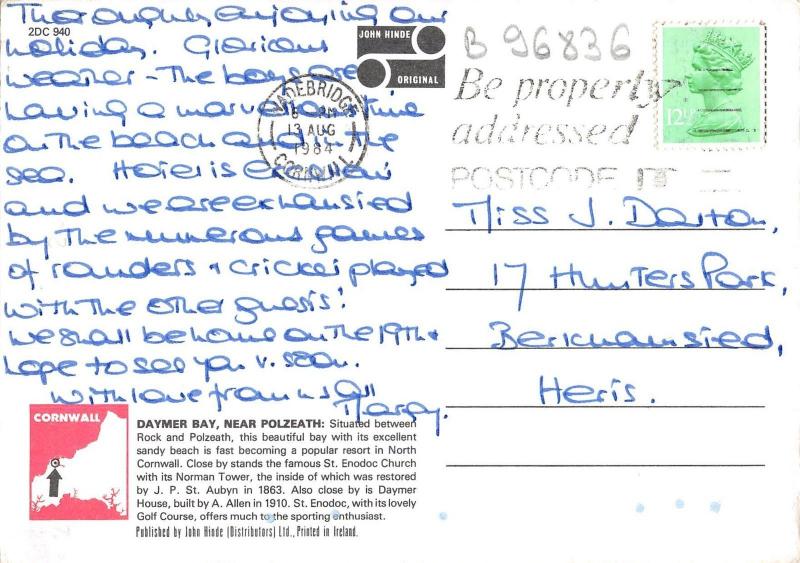 Thoroughly enjoying our
holiday. Glorious
weather - The boys are
having a marvellous time
on the beach and in the
sea. Hotel is excellent
and we are exhausted
by the numerous games
of rounders & cricket played
with the other guests!
We shall be home on the 19th &
hope to see you v. soon.
With love from us all
2DC 940
JOHN HINDE
ORIGINAL
WADEBRIDGE
PM
13 AUG
1984
CORNWALL
B 96836
Be properly
addressed
POSTCODE IT
12½
Miss J. Darton,
17 Hunters Park,
Berkhamsted,
Herts.
CORNWALL
DAYMER BAY, NEAR POLZEATH: Situated between
Rock and Polzeath, this beautiful bay with its excellent
sandy beach is fast becoming a popular resort in North
Cornwall. Close by stands the famous St. Enodoc Church
with its Norman Tower, the inside of which was restored
by J. P. St. Aubyn in 1863. Also close by is Daymer
House, built by A. Allen in 1910. St. Enodoc, with its lovely
Golf Course, offers much to the sporting enthusiast.
Published by John Hinde (Distributors) Ltd., Printed in Ireland.